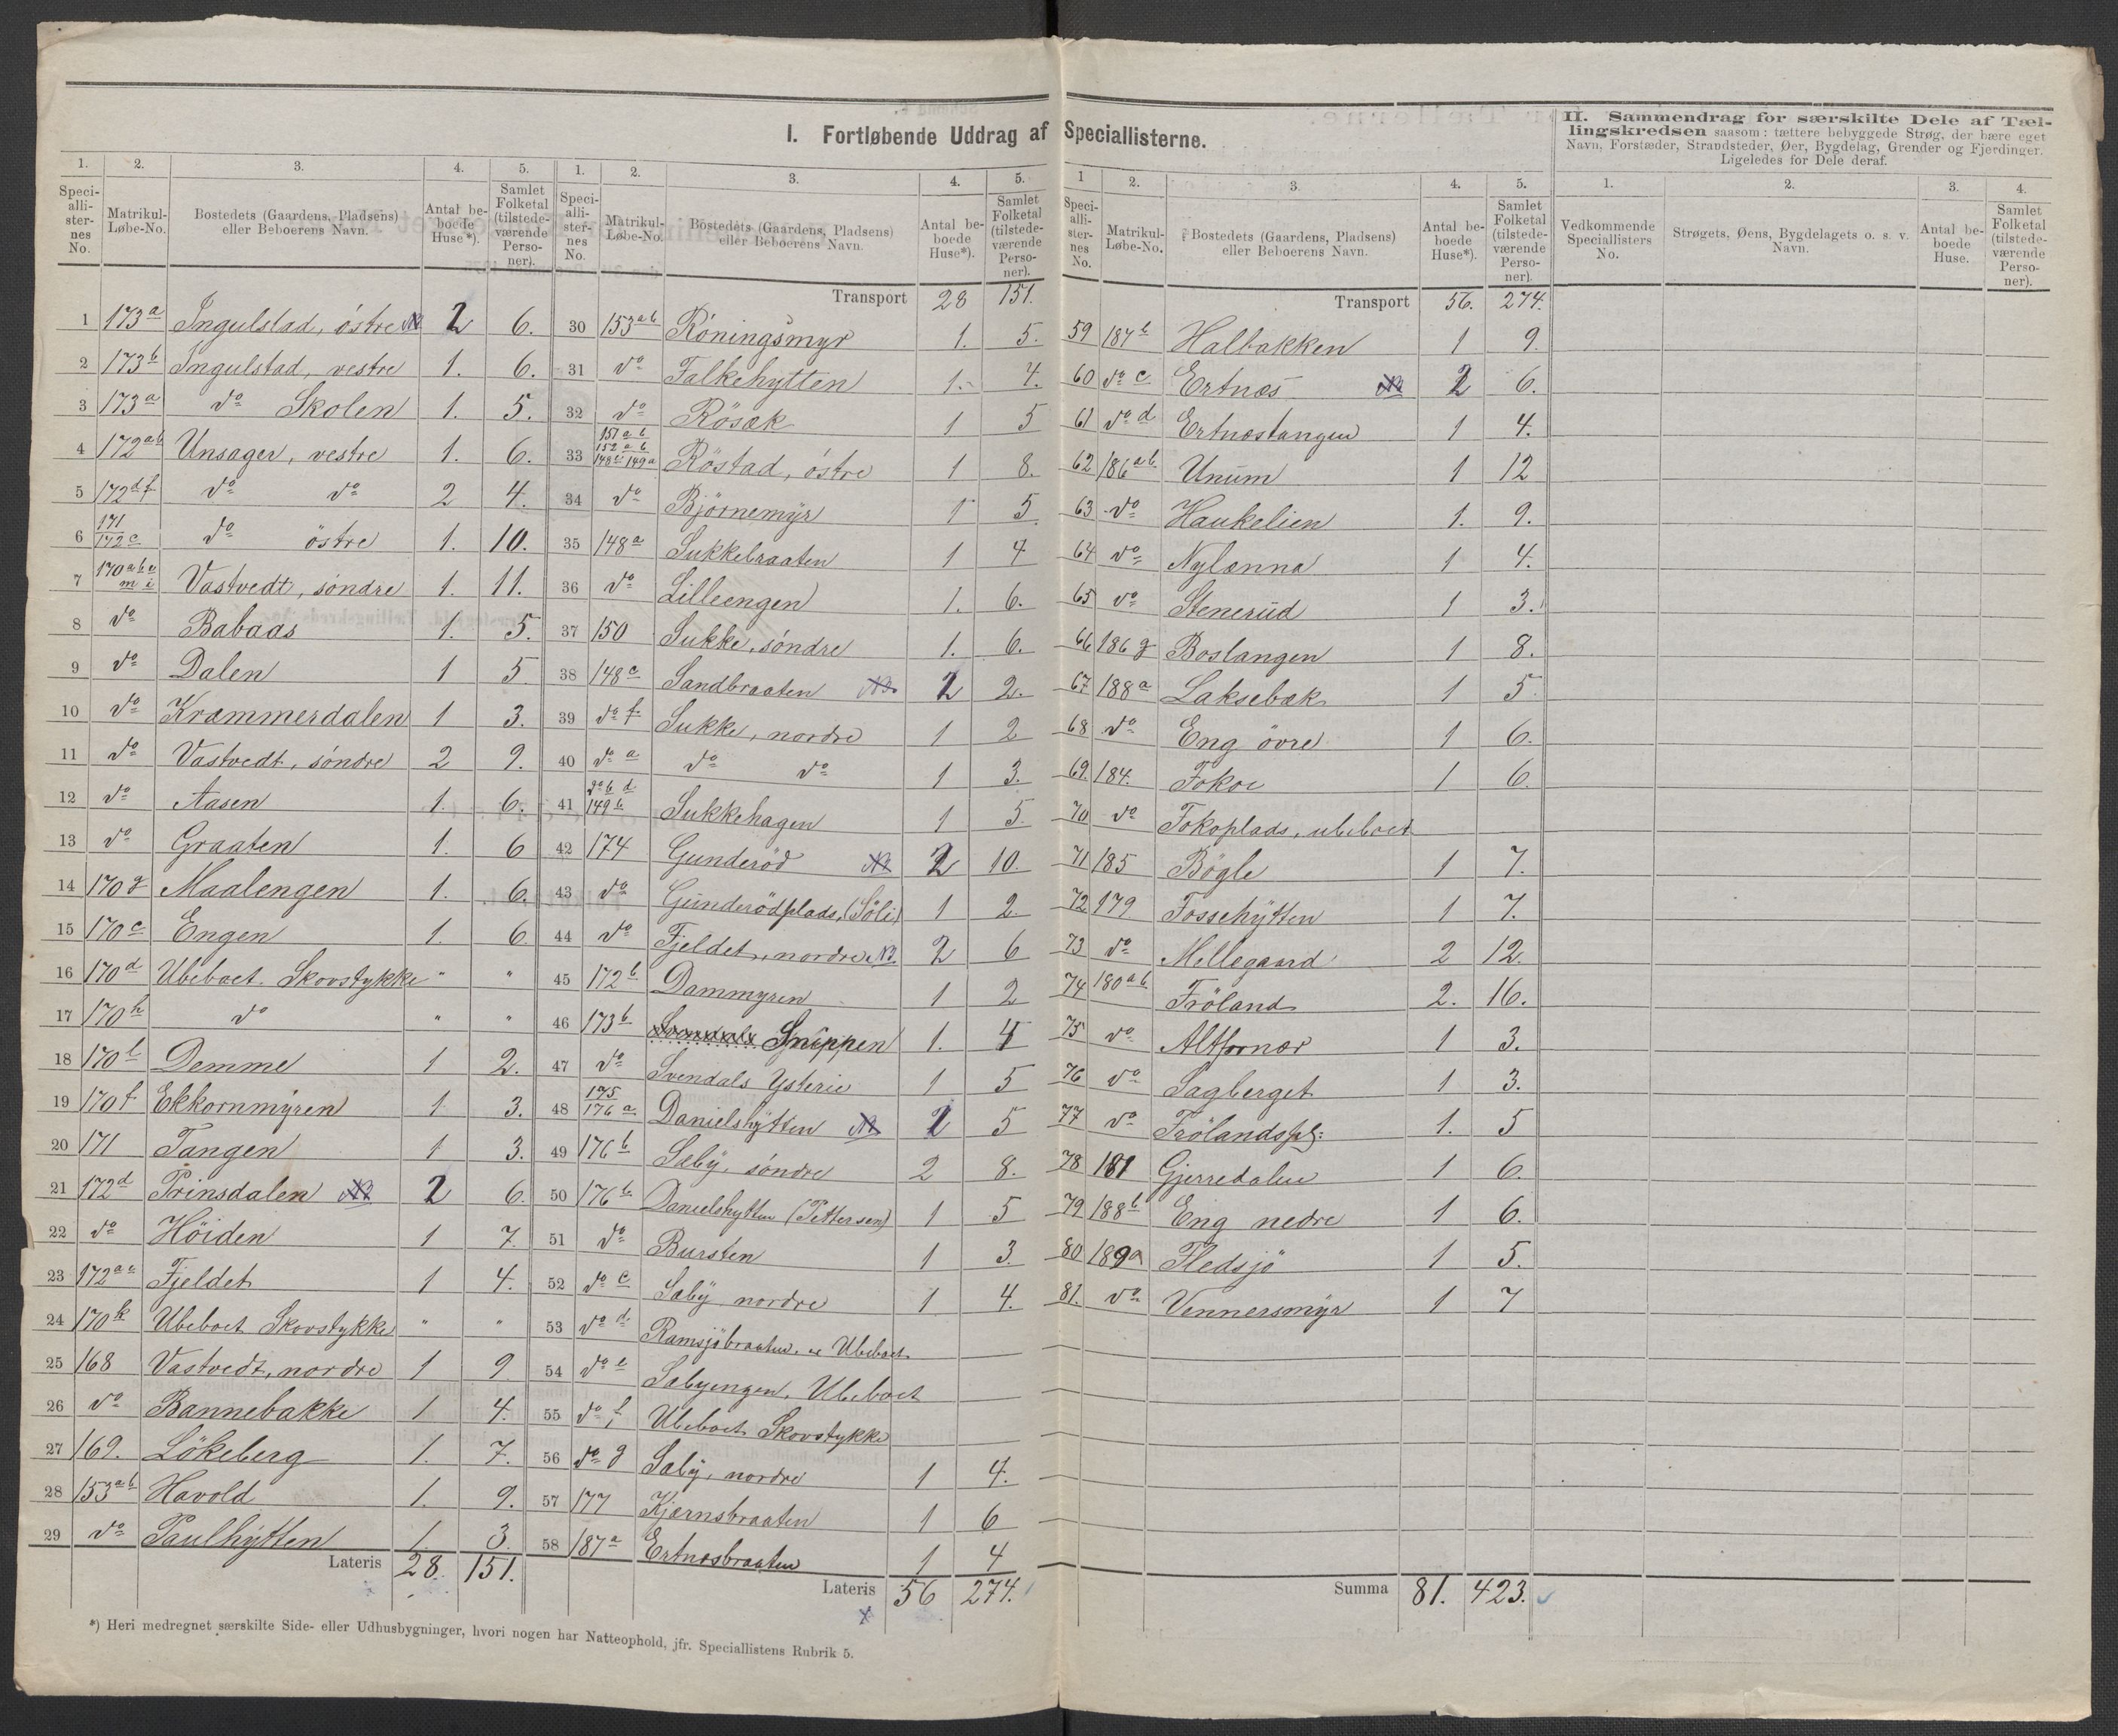 I. Fortløbende Uddrag af Speciallisterne.
II. Sammendrag for særskilte Dele af Tæl-
lingskredsen saasom: tættere bebyggede Strøg, der bære eget
Navn, Forstæder, Strandsteder, Øer, Bygdelag, Grender og Fjerdinger.
Ligeledes for Dele deraf.
1. 2. 3. 4. 5.
Speci-alli-ster-nes No. Matrikul-Løbe-No. Bostedets (Gaardens, Pladsens) eller Beboerens Navn. Antal be-boede Huse*). Samlet Folketal (tilstede-værende Perso-ner).
1 173a Ingulstad, östre 2 6.
2 173b Ingulstad, vestre 1. 6.
3 173a do Skolen 1. 5.
4 172ab Unsager, vestre 1. 6.
5 172df do do 2 4.
6 171 172c do östre 1. 10.
7 170abe m i Vastvedt, söndre 1. 11.
8 do Babaas 1. 5.
9 do Dalen 1 5
10 do Krammerdalen 1 3.
11 do Vastvedt, söndre 2 9.
12 do Aasen 1. 6.
13 do Graaten 1. 6
14 170g Maalengen 1. 6.
15 170c Engen 1. 6
16 170d Ubeboet Skovstykke " "
17 170h do " "
18 170l Demme 1 2.
19 170f Ekkornmyren 1 3.
20 171 Tangen 1 3.
21 172d Prinsdalen 2 6.
22 do Höiden 1 7.
23 172ae Fjeldet 1 4.
24 170k Ubeboet Skovstykke " "
25 168 Vastvedt, nordre 1 9
26 do Bannebakke 1 4.
27 169. Lökeberg 1. 7.
28 153ab Havold 1. 9.
29 do Paulhytten 1. 3.
Lateris 28. 151.
1. 2. 3. 4. 5.
Speci-alli-ster-nes No. Matrikul-Løbe-No. Bostedets (Gaardens, Pladsens) eller Beboerens Navn. Antal be-boede Huse*). Samlet Folketal (tilstede-værende Perso-ner).
Transport 28 151.
30 153ab Röningsmyr 1. 5.
31 do Falkehytten 1. 4.
32 do Rösæk 1 5
33 151ab 152ab 148b 149a Röstad, östre 1 8.
34 do Björnemyr 1 5.
35 148a Sukkebraaten 1 4
36 do Lilleengen 1. 6.
37 150 Sukke, söndre 1. 6.
38 148c Sandbraaten 2 2.
39 do f Sukke, nordre 1 2
40 do a do do 1 3.
41 do b d 149b Sukkehagen 1 5.
42 174 Gunderöd 2 10.
43 do Gunderödplads, (Söli) 1 2.
44 do Fjeldet, nordre 2 6
45 172b Dammyren 1 2
46 173b Snippen 1. 4
47 do Svendals Ysterie 1 5
48 175 176a Danielshytten 2 5
49 176b Sæby, söndre 2 8.
50 176b Danielshytten (Pettersen) 1 5
51 do Bursten 1 3.
52 do c Sæby nordre 1 4.
53 do d Ramsjöbraaten, Ubeboet
54 do e Sæbyengen, Ubeboet
55 do f Ubeboet Skovstykke
56 do g Sæby, nordre 1 4.
57 177 Kjærnsbraaten 1 6
58 187a Ertnæsbraaten 1 4
Lateris 56 274.
1 2. 3. 4. 5.
Speci-alli-ster-nes No. Matrikul-Løbe-No. Bostedets (Gaardens, Pladsens) eller Beboerens Navn. Antal be-boede Huse*). Samlet Folketal (tilstede-værende Perso-ner).
Transport 56. 274.
59 187b Halbakken 1 9.
60 do c Ertnæs 2 6.
61 do d Ertnæstangen 1 4.
62 186ab Unum 1 12
63 do Haukelien 1. 9.
64 do Nylænna 1 4.
65 do Stenerud 1 3.
66 186g Boslangen 1 8.
67 188a Laksebæk 1 5
68 do Eng övre 1 6.
69. 184. Fokoe 1 6.
70 do Fokoplads, ubeboet
71 185 Bögle 1 7.
72 179 Fossehytten 1 7.
73 do Mellegaard 2 12.
74 180ab Fröland 2. 16.
75 do Altfornær 1 3.
76 do Sagberget 1 3.
77 do Frölandspl: 1. 5
78 181 Gjerredalen 1 6.
79 188b Eng nedre 1 6.
80 189a Fledsjö 1 5.
81. do Vennersmyr 1 7
Summa 81. 423.
1. 2. 3. 4.
Vedkommende Speciallisters No. Strøgets, Øens, Bygdelagets o. s. v. Navn. Antal be-boede Huse. Samlet Folketal (tilstede-værende Perso-ner).
*) Heri medregnet særskilte Side- eller Udhusbygninger, hvori nogen har Natteophold, jfr. Speciallistens Rubrik 5.